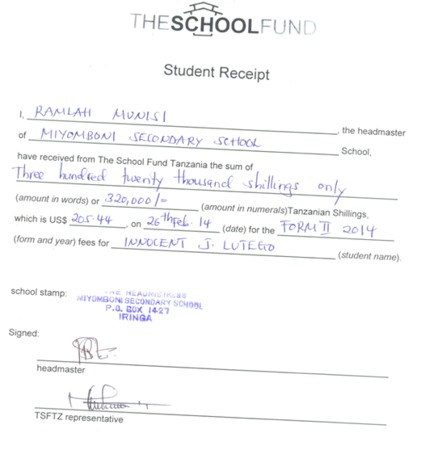 THESCHOOLFUND
Student Receipt
I, RAMLAH MUNISI, the headmaster
of MIYOMBONI SECONDARY SCHOOL School,
have received from The School Fund Tanzania the sum of
Three hundred twenty thousand shillings only
(amount in words) or 320,000/= (amount in numerals)Tanzanian Shillings,
which is US$ 205.44, on 26th Feb. 14 (date) for the FORM II 2014
(form and year) fees for INNOCENT J. LUTEGO (student name).
school stamp: THE HEADMISTRESS
MIYOMBONI SECONDARY SCHOOL
P.O. BOX 1427
IRINGA
Signed:
headmaster
TSFTZ representative